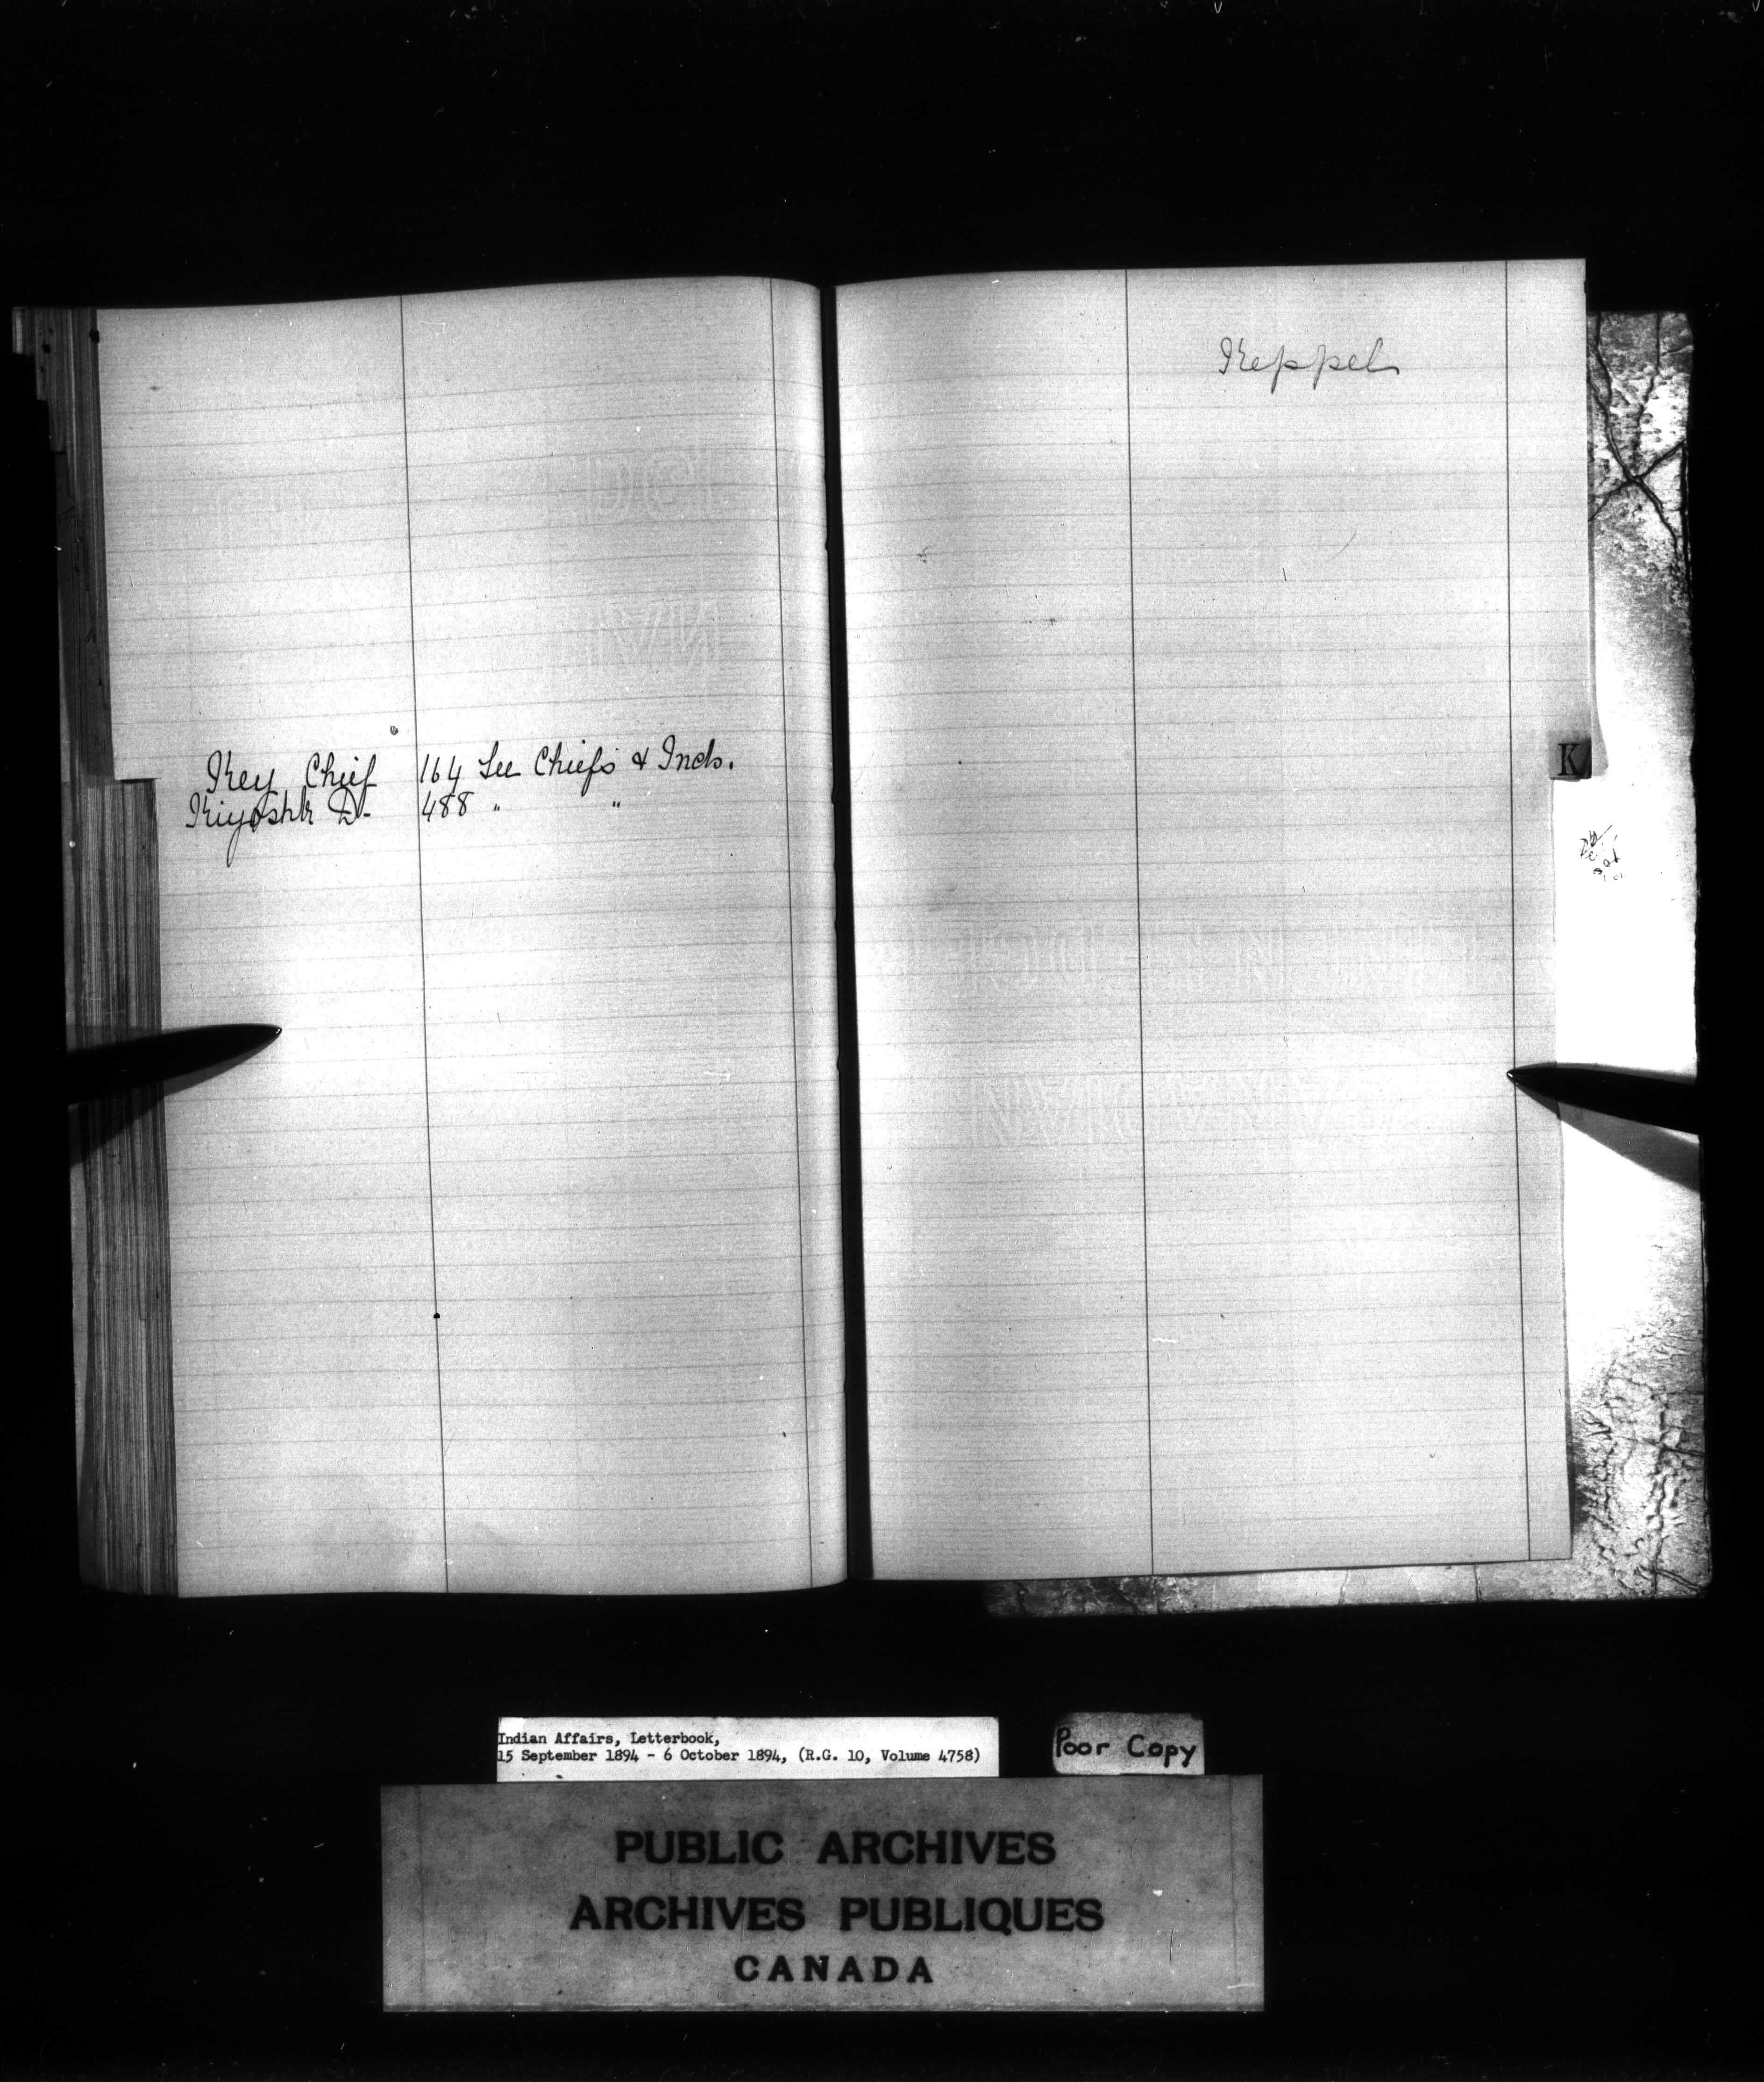 Key Chief 164 See Chiefs & Inds.
Kiyoshk D. 488 " "
Keppel
K
Indian Affairs, Letterbook,
15 September 1894 - 6 October 1894, (R.G. 10, Volume 4758)
Poor Copy
PUBLIC ARCHIVES
ARCHIVES PUBLIQUES
CANADA